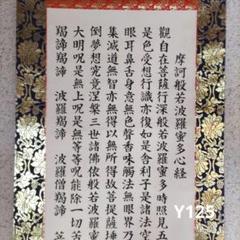 摩訶般若波羅蜜多心経
觀自在菩薩行深般若波羅蜜多時照見五
是色受想行識亦復如是舍利子是諸法空
眼耳鼻舌身意無色聲香味觸法無眼界乃
集滅道無智亦無得以無所得故菩提薩埵
倒夢想究竟涅槃三世諸佛依般若波羅蜜
大明呪是無上呪是無等等呪能除一切苦
羯諦羯諦 波羅羯諦 波羅僧羯諦
Y125